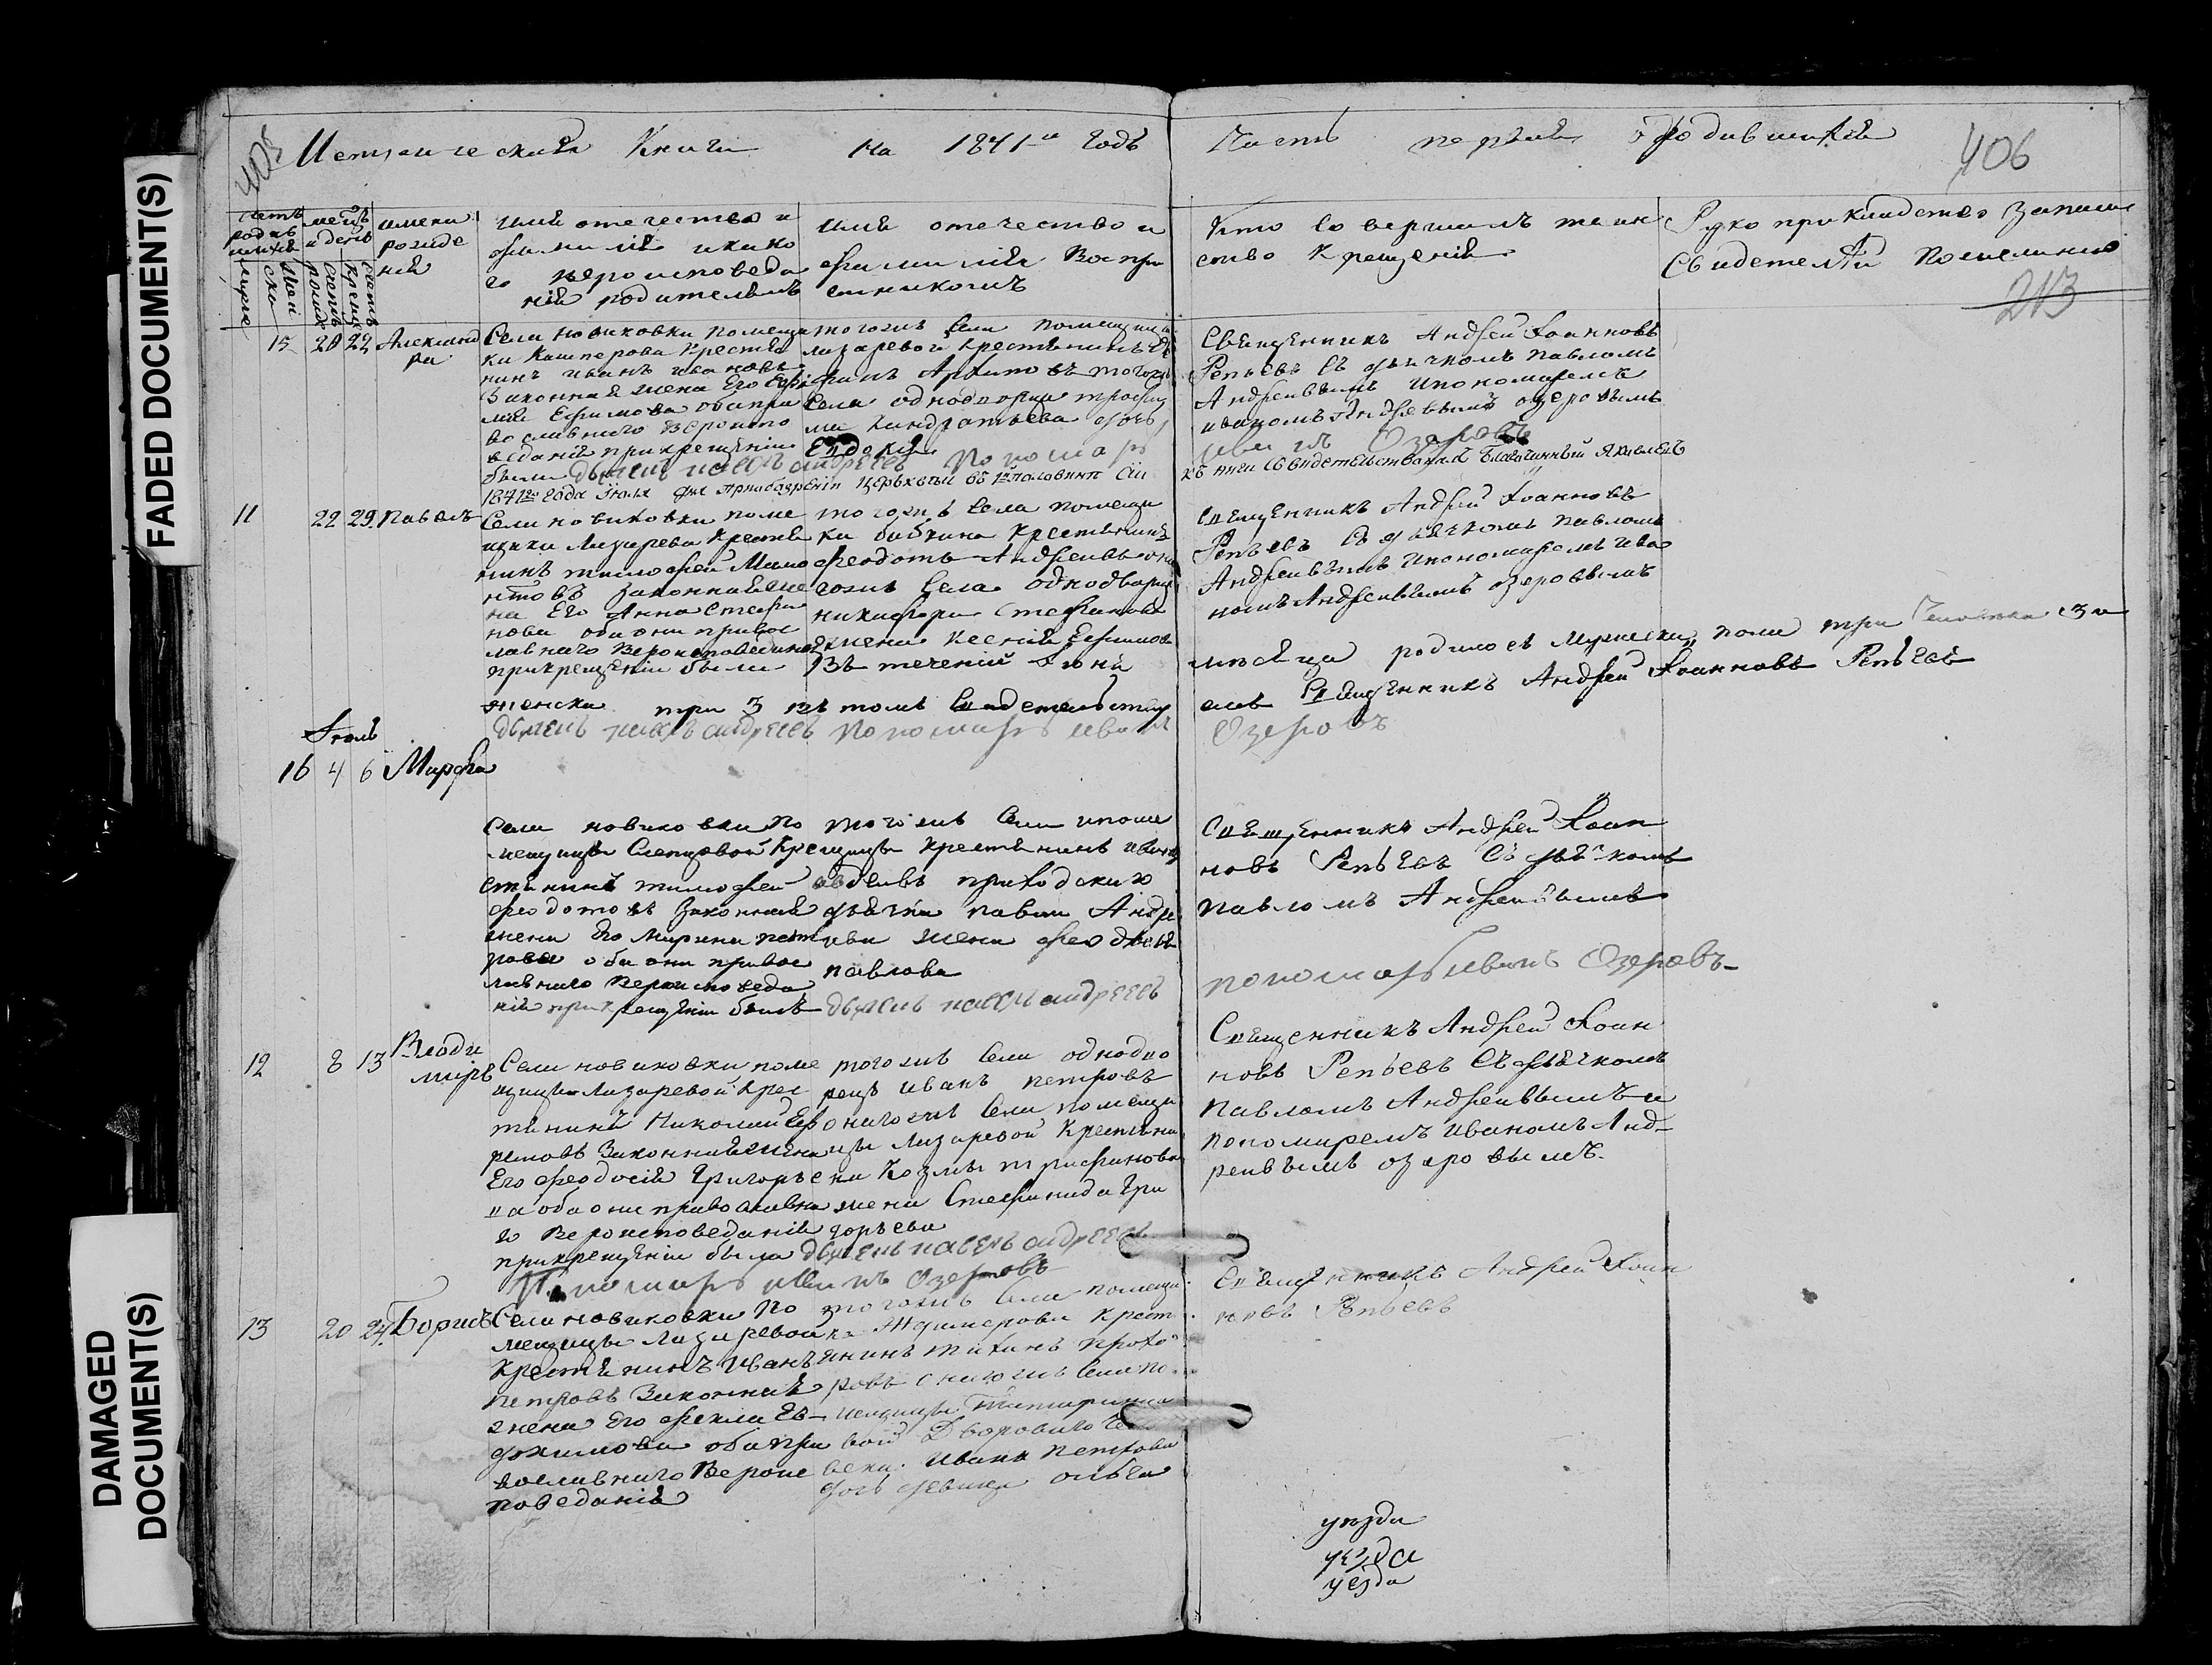 FADED DOCUMENT(S)
DAMAGED
DOCUMENT(S)
405
Метрической Книги на 1841й Годъ
Часть первая о родившихся
406
213
счетъ родив шихся
мужес
женска
месяцъ и день
рожде
креще
имена рожде ній
имя отечество и
фамилія и како
го вероисповеда
нія родителей
имя отечество и
фамилія Воспри
емниковъ
Кто совершалъ таин
ство Крещенія
Рукоприкладство записи
Свидетелей по желанию
15 20 22 Александ
ра
Села новиковки помещи
ка Кашперова Крестья
нинъ иванъ ивановъ
Законная жена Его
Ефимова оба пра
вославнаго вероиспо
веданія при крещеніи
были дьячекъ павелъ андреевъ
тогожъ Села помещицы
лазаревой Крестьянинъ
Архиповъ тогожъ
Села однодворца трофи
ма Кондратьева дочь
Евдокия
пономарь
Священникъ Андрей Іоанновъ
Репьевъ Съ дьячкомъ павломъ
Андреевымъ и пономаремъ
иваномъ Андреевымъ озеровымъ
иванъ Озеровъ
1841го Года Іюля дня при обозреніи церквей въ 1й половине сіи
книги свидетельствовалъ Благочинный
11 22 29 павелъ
Села новиковки поме
щика Лазарева Крестья
нинъ тимофей Мамо
нтовъ законная же
на Его Анна Стефа
нова оба они правос
лавнаго Вероисповеданія
при крещеніи были
тогожъ Села помещи
ка бабкина Крестьянинъ
феодотъ Андреевъ
гожъ Села однодворца
никифора Стефанова
жена Ксенія Ефимова
Священникъ Андрей Іоанновъ
Репьевъ Съ дьячкомъ павломъ
Андреевымъ и пономаремъ ива
номъ Андреевымъ озеровымъ
Въ теченій Іюня месяца родилось Мужеска пола три Человека 3 а
женска три 3 въ томъ Свидетельству емъ Священникъ Андрей Іоанновъ Репьевъ
дьячекъ павелъ андреевъ пономарь иванъ Озеровъ
Іюль
16 4 6 Марфа
Села новиковки по
мещицы Слепцовой Кре
стьянинъ тимофей
феодотовъ Законная
жена Его Марина пет
рова оба они правос
лавнаго Вероисповеда
нія при крещеніи былъ
тогожъ Села и поме
щицы крестьянинъ
авдеевъ приходскаго
дьячка павла Андре
ева жена феодосья
павлова
дьячекъ павелъ андреевъ
Священникъ Андрей Іоан
новъ Репьевъ Съ дьячкомъ
павломъ Андреевымъ
пономарь иванъ Озеровъ
12 8 13 Влади
миръ
Села новиковки поме
щицы Лазаревой Крес
тьянинъ Николай Еф
ремовъ Законная жена
Его феодосія Григорье
ва оба они православна
го Вероисповеданія
при крещеніи была
тогожъ Села однодво
рецъ иванъ петровъ
онагожъ Села помещи
цы Лазаревой Крестьяни
на Козмы трифонова
жена Стефанида Гри
горьева
дьячекъ павелъ андреевъ
Пономарь иванъ Озеровъ
Священникъ Андрей Іоан
новъ Репьевъ Съ дьячкомъ
павломъ Андреевымъ и
пономаремъ иваномъ Анд-
реевымъ озеровымъ.
13 20 24 Борисъ
Села новиковки по
мещицы Лазаревой
Крестьянинъ иванъ
петровъ Законная
жена Его фекла Ев-
докимова оба пра
вославнаго Вероис
поведанія
тогожъ Села помещи
ка Кашперова Крест
янинъ тихинъ прохо
ровъ онагожъ Села по
мещицы
вой Двороваго Чело
века ивана петрова
дочь девица ольга
Священникъ Андрей Іоан
новъ Репьевъ
уезда
уезда
уезда